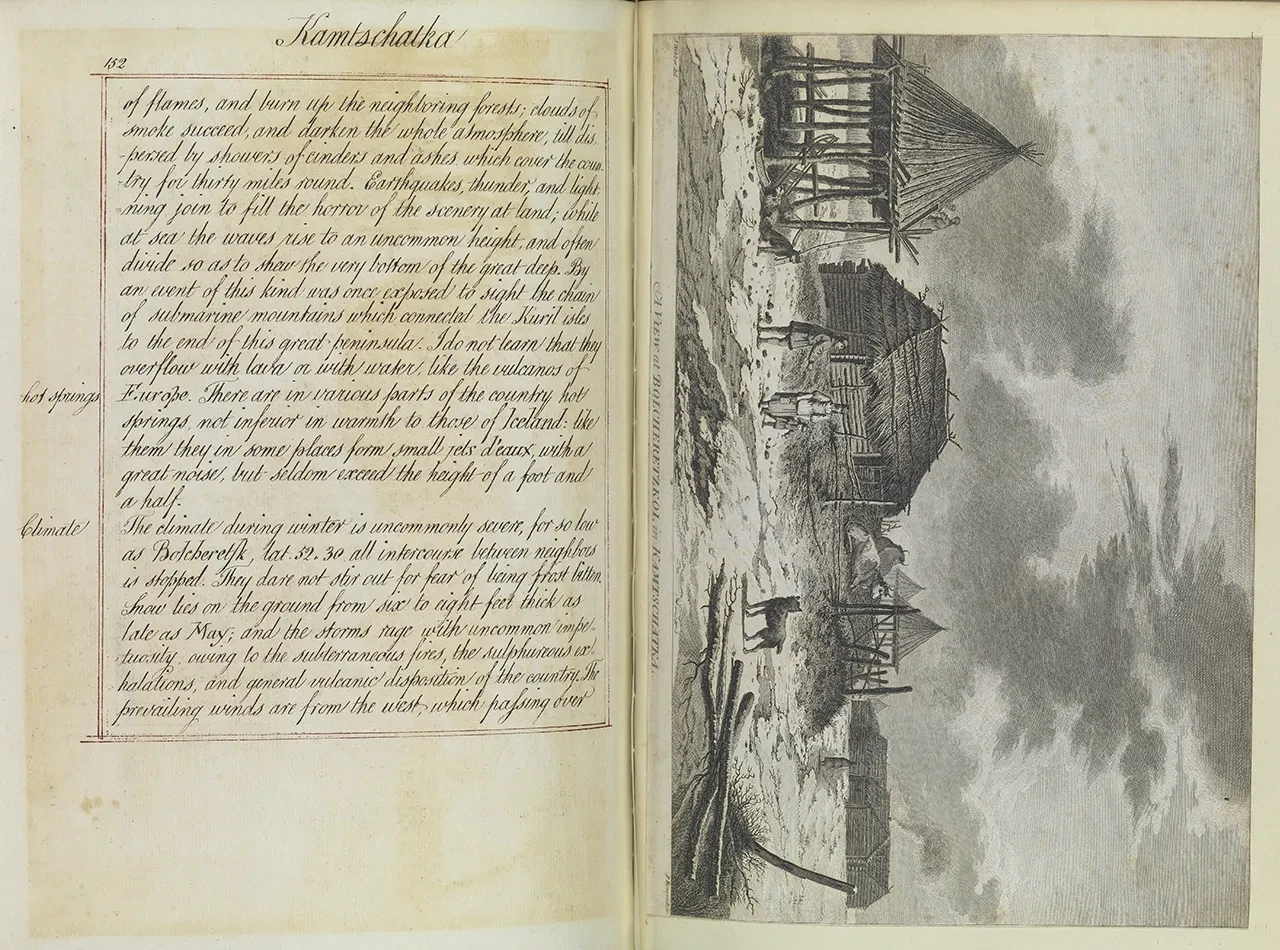 Kamtschatka
152
of flames, and burn up the neighboring forests; clouds of
smoke succeed, and darken the whole atmosphere, till dis-
-persed by showers of cinders and ashes which cover the coun-
-try for thirty miles round. Earthquakes, thunder, and light-
-ning join to fill the horror of the scenery at land; while
at sea the waves rise to an uncommon height, and often
divide so as to shew the very bottom of the great deep. By
an event of this kind was once exposed to sight the chain
of submarine mountains which connected the Kuril isles
to the end of this great peninsula. I do not learn that they
overflow with lava or with water, like the vulcanos of
hot springs
Europe. There are in various parts of the country hot
springs, not inferior in warmth to those of Iceland: like
them they in some places form small jets d'eaux, with a
great noise, but seldom exceed the height of a foot and
a half.
Climate
The climate during winter is uncommonly severe, for so low
as Bolcheretsk, lat. 52.30 all intercourse between neighbors
is stopped. They dare not stir out for fear of being frost bitten.
Snow lies on the ground from six to eight feet thick as
late as May; and the storms rage with uncommon impe-
tuosity, owing to the subterraneous fires, the sulphureous ex-
halations, and general vulcanic disposition of the country. The
prevailing winds are from the west, which passing over
A VIEW at BOLCHERETZKOI, in KAMTSCHATKA.